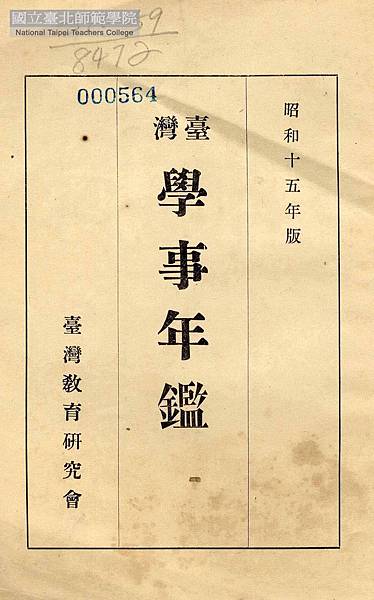 國立臺北師範學院
National Taipei Teachers College
8472
000564
昭和十五年版
臺灣
學事年鑑
臺灣教育研究會